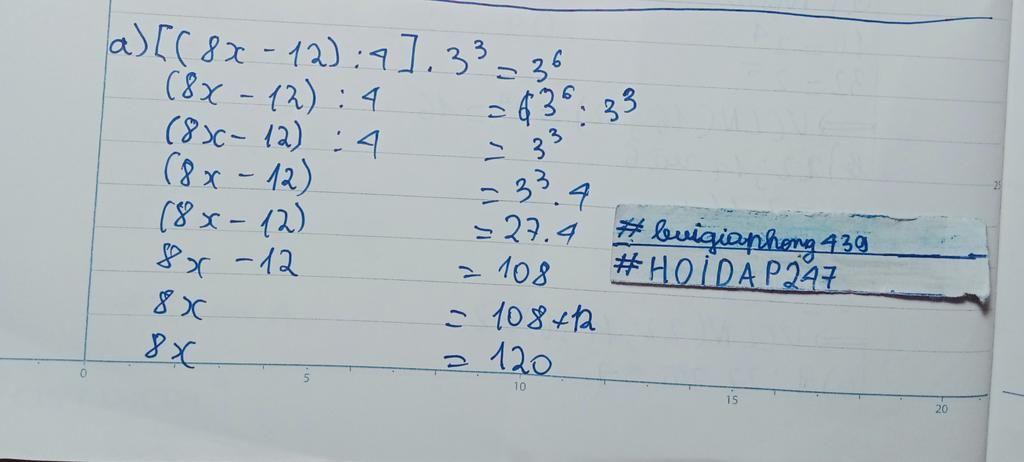 a) [(8x - 12) : 4] . 3³ = 3⁶
(8x - 12) : 4 = 3⁶ : 3³
(8x - 12) : 4 = 3³
(8x - 12) = 3³ . 4
(8x - 12) = 27 . 4
8x - 12 = 108
8x = 108 + 12
8x = 120
# buigiaphong439
# HOIDAP247
0 5 10 15 20
25